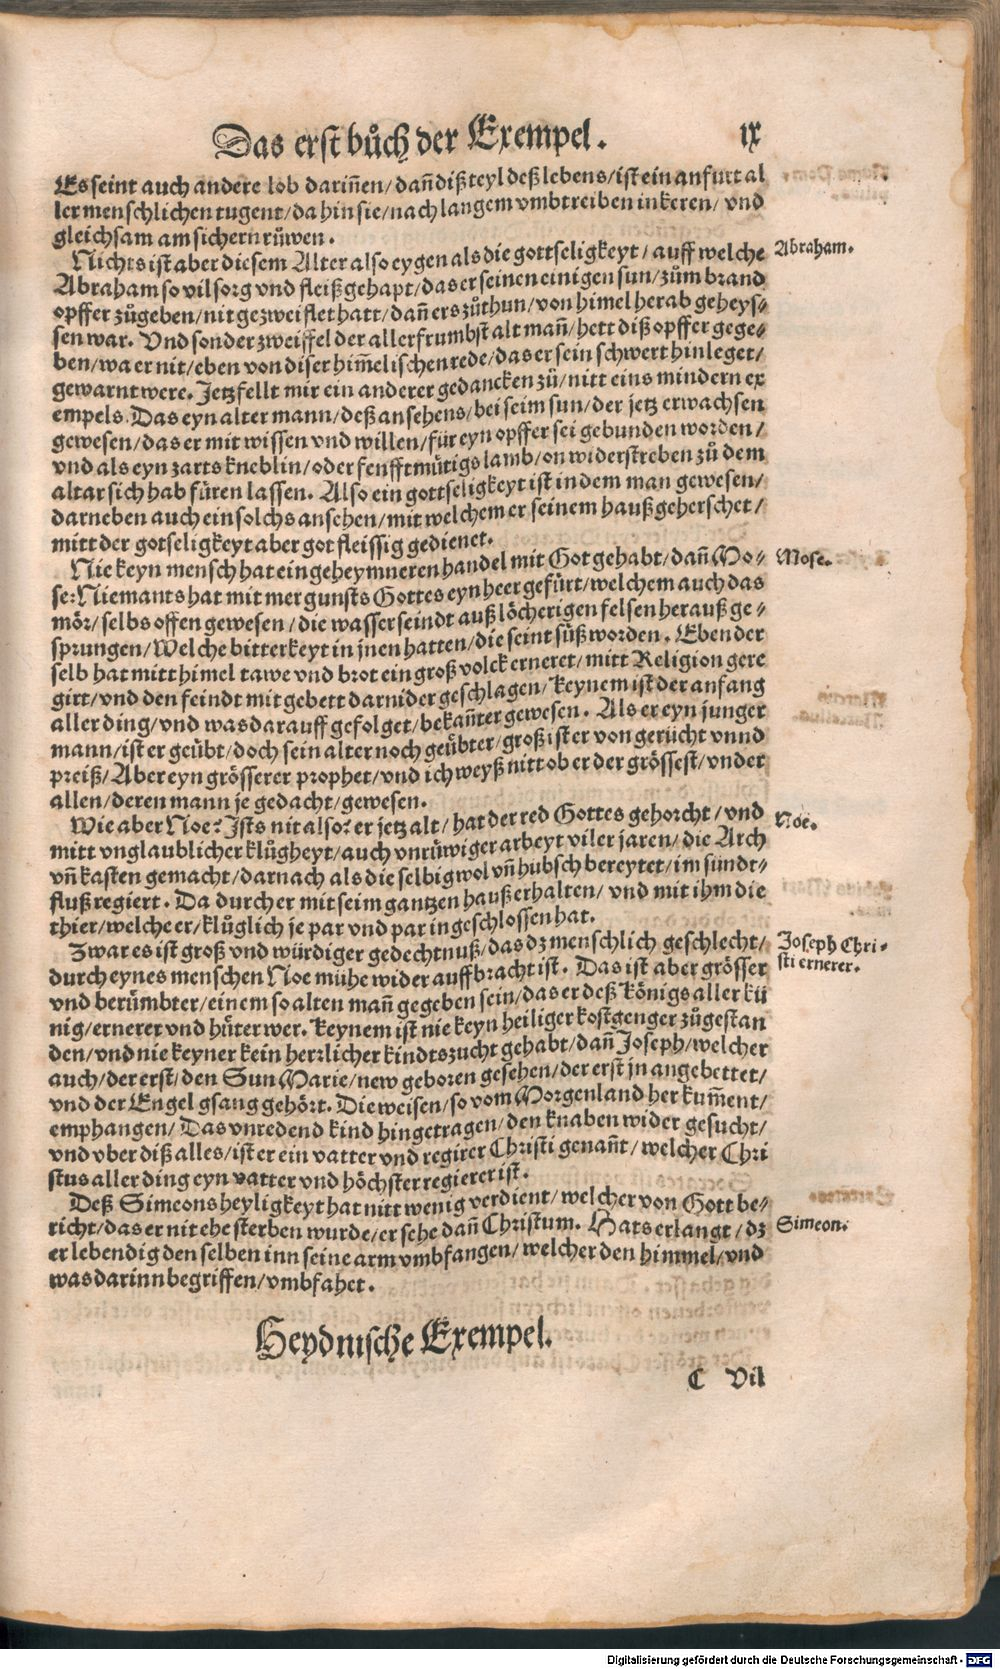 Das erst bůch der Exempel. IX
Es seint auch andere lob dariñen/ dañ diß teyl deß lebens/ ist ein anfurt al
ler menschlichen tugent/ da hin sie/ nach langem vmbtreiben inkeren/ vnd
gleichsam am sichern rüwen.
Nichts ist aber diesem Alter also eygen als die gottseligkeyt/ auff welche
Abraham.
Abraham so vil sorg vnd fleiß gehapt/ das er seinen einigen sun/ zům brand
opffer zůgeben/ nit gezweiflet hatt/ dañ ers zůthun/ von himel herab geheys-
sen war. Vnd sonder zweiffel der aller frumbst alt mañ/ hett diß opffer gege-
ben/ wa er nit/ eben von diser him̃elischen rede/ das er sein schwert hinleget/
gewarnt were. Jetz fellt mir ein anderer gedancken zů/ nitt eins mindern ex
empels. Das eyn alter mann/ deß ansehens/ bei seim sun/ der jetz erwachsen
gewesen/ das er mit wissen vnd willen/ für eyn opffer sei gebunden worden/
vnd als eyn zarts kneblin/ oder senfftmütigs lamb/ on widerstreben zů dem
altar sich hab füren lassen. Also ein gottseligkeyt ist in dem man gewesen/
darneben auch ein solchs ansehen/ mit welchem er seinem hauß geherschet/
mitt der gotseligkeyt aber got fleissig gedienet.
Nie keyn mensch hat ein geheymneren handel mit Got gehabt/ dañ Mo-
Mose.
se: Niemants hat mit mer gunsts Gottes eyn heer gefürt/ welchem auch das
mör/ selbs offen gewesen/ die wasser seindt auß löcherigen felsen herauß ge-
sprungen/ Welche bitterkeyt in jnen hatten/ die seint süß worden. Eben der
selb hat mitt himel tawe vnd brot ein groß volck erneret/ mitt Religion gere
girt/ vnd den feindt mit gebett darnider geschlagen/ keynem ist der anfang
aller ding/ vnd was darauff gefolget/ bekañter gewesen. Als er eyn junger
mann/ ist er geübt/ doch sein alter noch geübter/ groß ist er von gerücht vnnd
preiß/ Aber eyn grösserer prophet/ vnd ich weyß nitt ob er der grössest/ vnder
allen/ deren mann je gedacht/ gewesen.
Wie aber Noe? Ists nit also? er jetz alt/ hat der red Gottes gehorcht/ vnd
Noe.
mitt vnglaublicher klůgheyt/ auch vnrüwiger arbeyt viler jaren/ die Arch
vñ kasten gemacht/ darnach als die selbig wol vñ hubsch bereytet/ im sündt-
fluß regiert. Da durch er mit seim gantzen hauß erhalten/ vnd mit ihm die
thier/ welche er/ klůglich je par vnd par ingeschlossen hat.
Zwar es ist groß vnd würdiger gedechtnuß/ das dz menschlich geschlecht/
Joseph Chri-
sti ernerer.
durch eynes menschen Noe mühe wider auffbracht ist. Das ist aber grösser
vnd berümbter/ einem so alten mañ gegeben sein/ das er deß Königs aller kü
nig/ ernerer vnd hüter wer. Keynem ist nie keyn heiliger kostgenger zůgestan
den/ vnd nie keyner kein herrlicher kindtszucht gehabt/ dañ Joseph/ welcher
auch/ der erst/ den Sun Marie/ new geboren gesehen/ der erst jn angebettet/
vnd der Engel gsang gehört. Die weisen/ so vom Morgenland her kum̃ent/
emphangen/ Das vnredend kind hingetragen/ den knaben wider gesucht/
vnd vber diß alles/ ist er ein vatter vnd regirer Christi genañt/ welcher Chri
stus aller ding eyn vatter vnd höchster regierer ist.
Deß Simeons heyligkeyt hat nitt wenig verdient/ welcher von Gott be-
richt/ das er nit ehe sterben wurde/ er sehe dañ Christum. Hats erlangt/ dz
Simeon.
er lebendig den selben inn seine arm vmbfangen/ welcher den himmel/ vnd
was darinn begriffen/ vmbfahet.
Heydnische Exempel.
C Vil
Digitalisierung gefördert durch die Deutsche Forschungsgemeinschaft - DFG